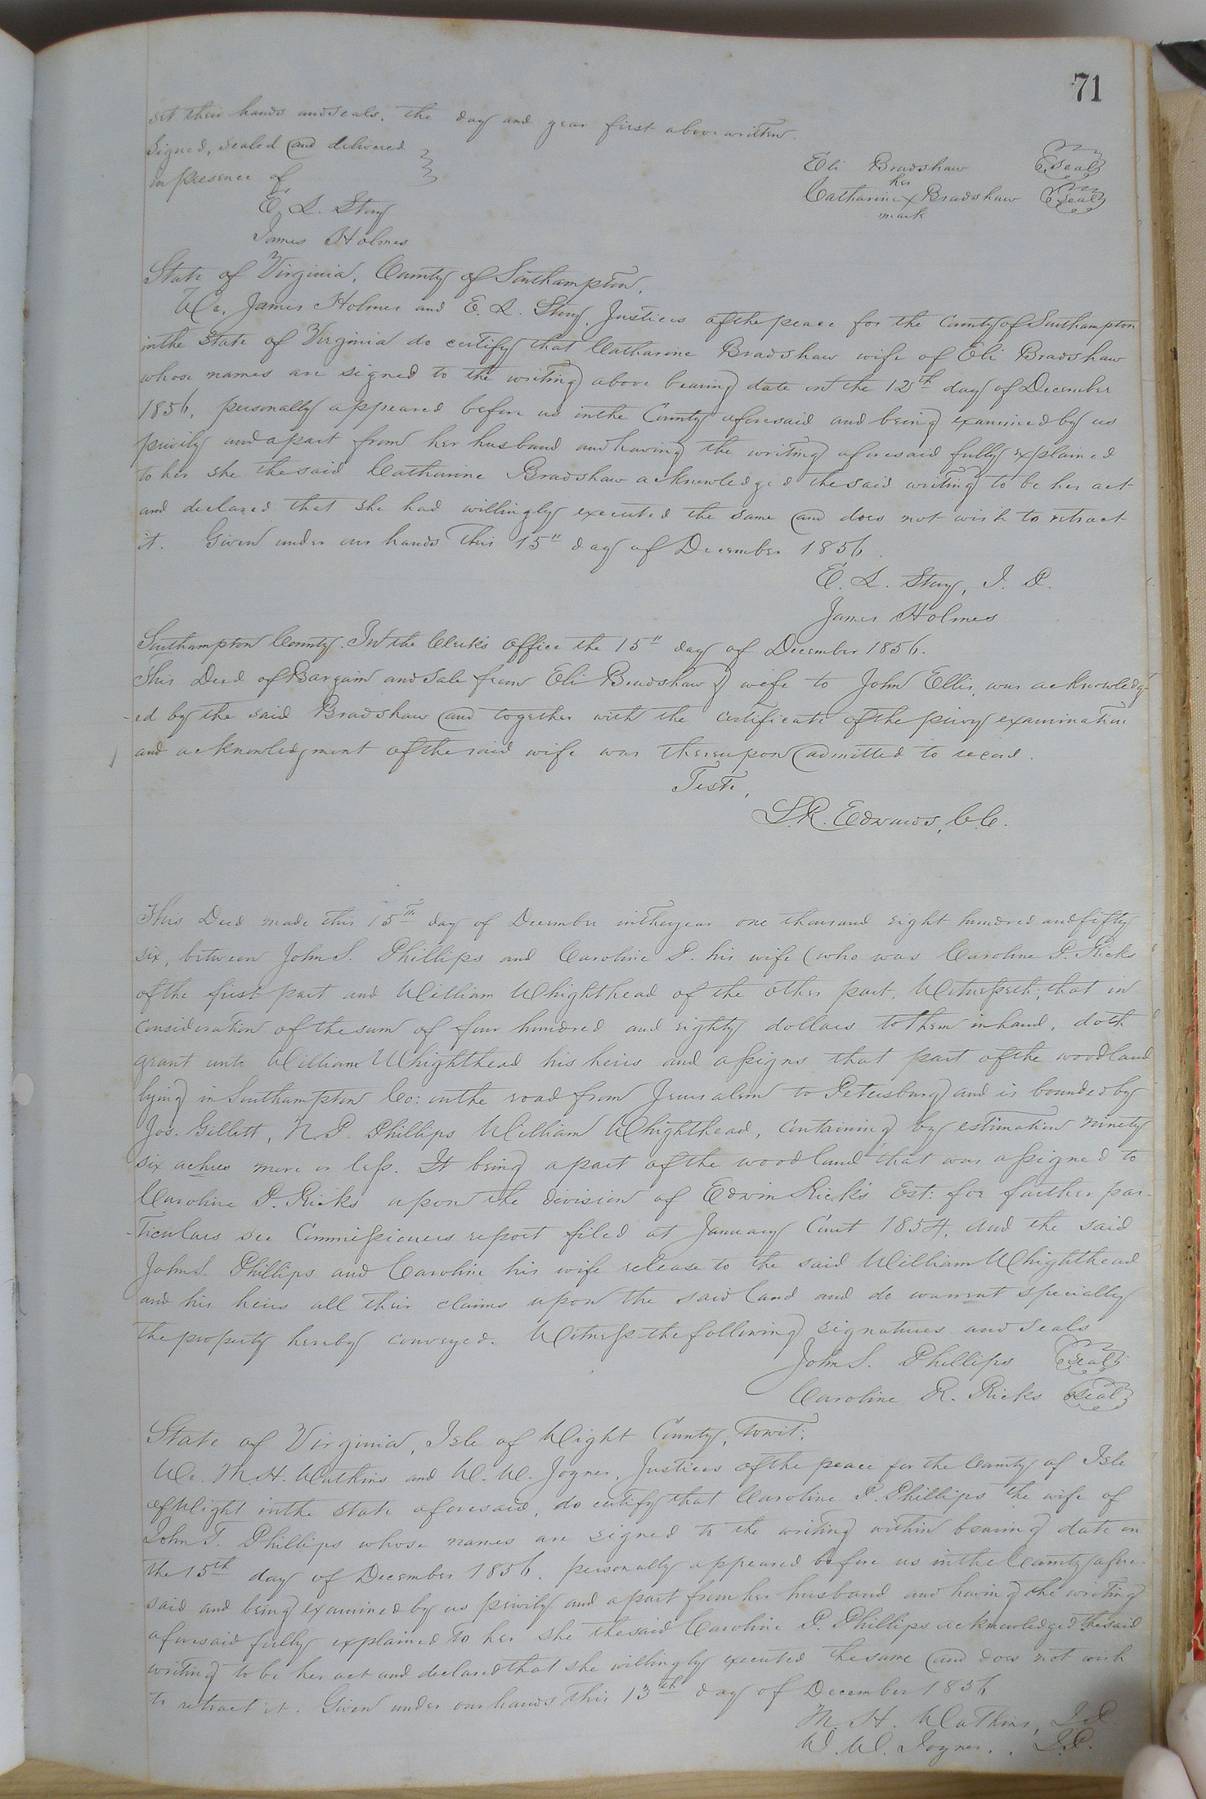 71
set their hands and seals, the day and year first above written.
Signed, sealed and delivered
in presence of
Eli Bradshaw Seal
her
Catharine X Bradshaw Seal
mark
E. L. Story
James Holmes
State of Virginia, County of Southampton,
We, James Holmes and E. L. Story, Justices of the peace for the County of Southampton
in the State of Virginia do certify that Catharine Bradshaw wife of Eli Bradshaw
whose names are signed to the writing above bearing date on the 12th day of December
1856, personally appeared before us in the County aforesaid and being examined by us
privily and apart from her husband and having the writing aforesaid fully explained
to her she the said Catharine Bradshaw acknowledged the said writing to be her act
and declared that she had willingly executed the same and does not wish to retract
it. Given under our hands this 15" day of December 1856.
E. L. Story, J. P.
James Holmes
Southampton County. In the Clerk's Office the 15" day of December 1856.
This Deed of Bargain and Sale from Eli Bradshaw & wife to John Ellis, was acknowledg-
-ed by the said Bradshaw and together with the certificate of the privy examination
and acknowledgment of the said wife was thereupon admitted to record.
Teste,
L. R. Edwards, C.C.
This Deed made this 15th day of December in the year one thousand eight hundred and fifty
six, between John S. Phillips and Caroline P. his wife (who was Caroline P. Ricks
of the first part and William Whighthead of the other part. Witnesseth; that in
consideration of the sum of four hundred and eighty dollars to them in hand, doth
grant unto William Whighthead his heirs and assigns that part of the woodland
lying in Southampton Co: on the road from Jerusalem to Petersburg and is bounded by
Jos. Gillett, N. P. Phillips William Whighthead, containing by estimation ninety
six achres more or less. It being a part of the woodland that was assigned to
Caroline P. Ricks upon the division of Edwin Ricks Est: for further par-
-ticulars see Commissioners report filed at January Court 1854, and the said
John S. Phillips and Caroline his wife release to the said William Whighthead
and his heirs all their claims upon the said land and do warrant specially
the property hereby conveyed. Witness the following signatures and seals
John S. Phillips Seal
Caroline R. Ricks Seal
State of Virginia, Isle of Wight County, towit;
We. M. H. Watkins and W. W. Joyner, Justices of the peace for the County of Isle
of Wight in the State aforesaid, do certify that Caroline P. Phillips the wife of
John S. Phillips whose names are signed to the writing within bearing date on
the 15th day of December 1856, personally appeared before us in the County afore-
said and being examined by us privily and apart from her husband and having the writing
aforesaid fully explained to her she the said Caroline P. Phillips acknowledged the said
writing to be her act and declared that she willingly executed the same and does not wish
to retract it. Given under our hands this 13th day of December 1856
M. H. Watkins, J.P.
W. W. Joyner, J.P.